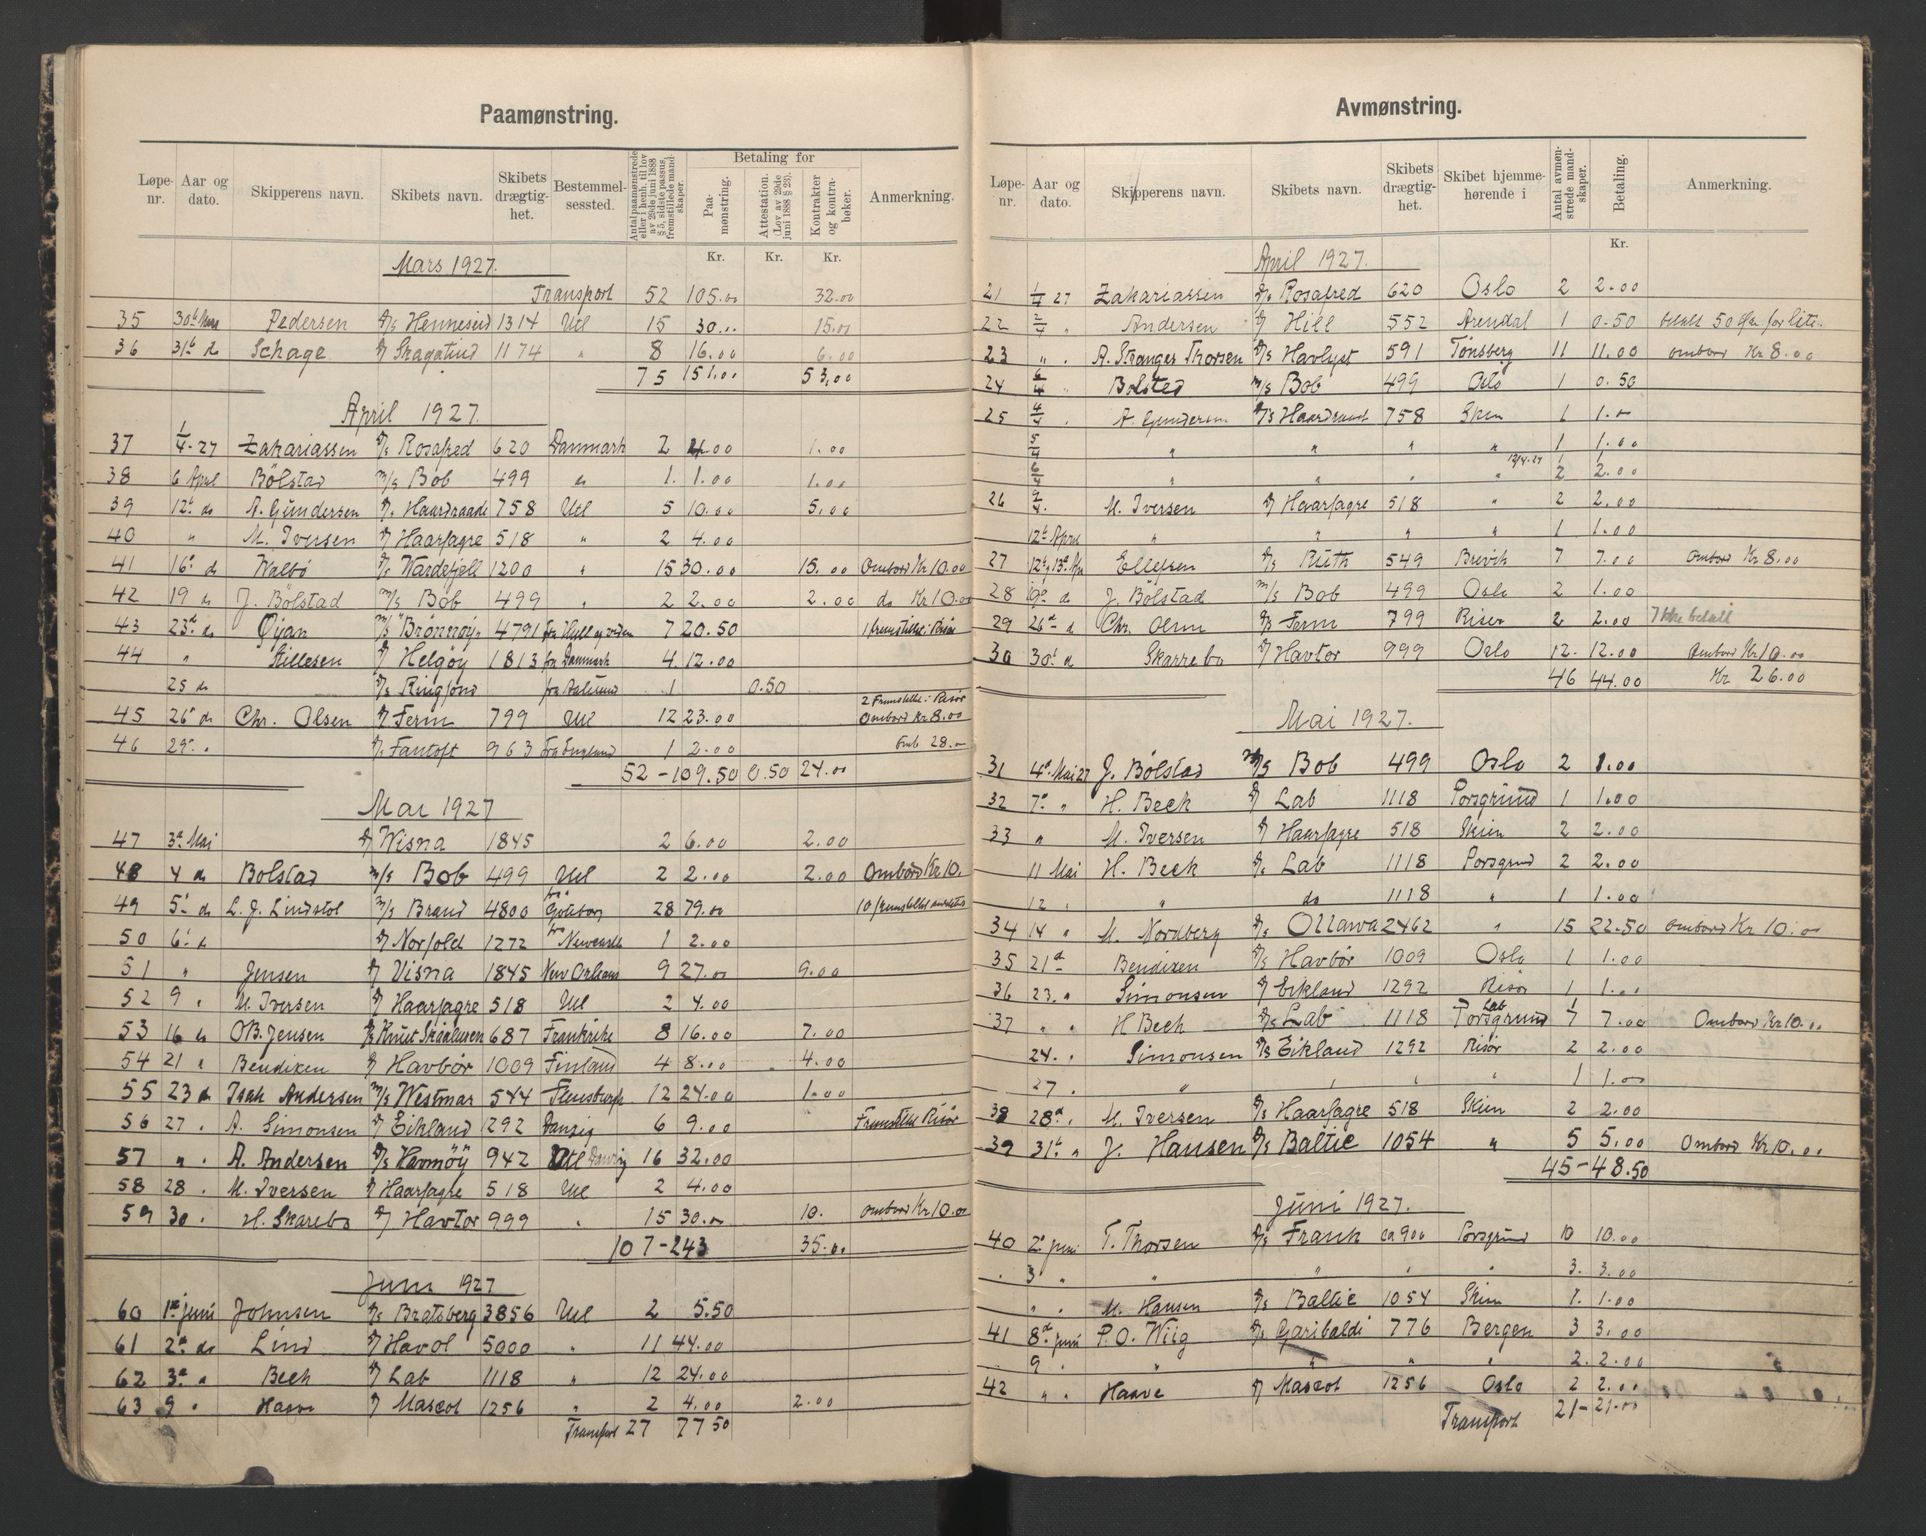 Paamønstring.
Løpe-nr. Aar og dato. Skipperens navn. Skibets navn. Skibets drægtig-het. Bestemmel-sessted. Antal paamønstrede eller i henh. til lov av 29de juni 1888 § 5, sidste passus, fremstillede mand-skaper. Betaling for Paa-mønstring. Attestation. (Lov av 29de juni 1888 § 23). Kontrakter og kontra-bøker. Anmerkning.
Kr. Kr. Kr.
Mars 1927.
Transport 52 105.00 32.00
35 30te Mars Pedersen S/S Henneseid 1314 Utl 15 30.00 15.00
36 31te do Schage S/S Skagatind 1174 " 8 16.00 6.00
75 151.00 53.00
April 1927.
37 1/4-27 Zakariassen S/S Rosafred 620 Danmark 2 4.00 1.00
38 6 April Bölstad M/S Bob 499 do 1. 1.00 1.00
39 12te do A. Gundersen S/S Haardraade 758 Utl 5 10.00 5.00
40 " M. Iversen S/S Haarfagre 518 " 2 4.00
41 16de do Walbö S/S Vardefjell 1200 " 15 30.00 15.00 Ombord Kr 10.00
42 19 do J. Bölstad M/S Bob 499 " 2 2.00 2.00 do Kr 10.00
43 23de do Öyan M/S "Brönnöy" 4791 fra Hull og verden 7 20.50 1 fremstillet i Risör
44 " Stillesen S/S Helgöy 1813 fra Danmark 4 12.00
25 do S/S Ringfond fra Aalesund 1 0.50
2 Fremstillet i Risör
45 26de do Chr. Olsen S/S Ferm 799 Utl 12 23.00 Ombord Kr 8.00
46 29de " S/S Fantoft 963 fra England 1 2.00 Omb 28.00
52 - 109.50 0.50 24.00
Mai 1927
47 3de Mai S/S Wisna 1845 2 6.00 2.00
48 4 do Bolstad M/S Bob 499 Utl 2 2.00 2.00 Ombord Kr 10.
49 5te do L. J. Lindstol M/S Brand 4800 fra Göteborg 28 79.00
50 6te do S/S Norfold 1272 fra Newcastle 1 2.00
51 " Jensen S/S Visna 1845 New Orleans 9 27.00 9.00
52 9 " M. Iversen S/S Haarfagre 518 Utl 2 4.00
53 16 do O.B. Jensen S/S Knut Skaaluren 687 Frankrike 8 16.00 7.00
54 21 " Bendixen S/S Havbör 1009 Finland 4 8.00 4.00
55 23 do Isak Andersen M/S Westmar 544 Flensburg 12 24.00 1.00
56 27 " A. Simonsen S/S Eikland 1292 Danzig 6 9.00 Fremstillet Risör
57 " " A. Andersen S/S Havmöy 942 Utl Danzig 16 32.00
58 28 " M. Iversen S/S Haarfagre 518 Utl 2 4.00
59 30 " H. Skarebo S/S Havtor 999 " 15 30.00 10. ombord Kr 10.00
107 - 243 35.00
Juni 1927
60 1ste juni Johnsen S/S Bratsberg 3856 Utl 2 5.50
61 2de do Lind S/S Havol 5000 " 11 44.00
62 3de " Beck S/S Lab 1118 " 12 24.00
63 9 " Haave S/S Mascot 1256 " 2 4.00 2.00
Transport 27 77 50
Avmønstring.
Løpe-nr. Aar og dato. Skipperens navn. Skibets navn. Skibets drægtig-het. Skibet hjemme-hørende i Antal avmøn-strede mand-skaper. Betaling. Anmerkning.
Kr.
April 1927.
21 1/4 27 Zakariassen S/S Rosafred 620 Oslo 2 2.00
22 2/4 " Andersen S/S Hill 552 Arendal 1 0.50 betalt 50 øre for lite.
23 " " A. Stranger Thorsen S/S Havlyst 591 Tönsberg 11 11.00 ombord Kr 8.00
24 6/4 " Bolsted M/S Bob 499 Oslo 1 0.50
25 4/4 " A. Gundersen S/S Haardraade 758 Skien 1 1.00
5/4 " " " " 1 1.00
12/4-27 1
6/4 " " " " 2 2.00
26 9/4 M. Iversen S/S Haarfagre 518 " 2 2.00
12te April " " " " 1 1.00
27 12te og 13de Apr Ellefsen S/S Ruth 549 Brevik 7 7.00 Ombord Kr 8.00
28 19de d J. Bölstad M/S Bob 499 Oslo 2 1.00
29 26de d Chr. Olsen S/S Ferm 799 Risör 2 2.00 Ikke betalt
30 30te d Skarrebo S/S Havtor 999 Oslo 12. 12.00 Ombord Kr 10.00
46 44.00 Kr 26.00
Mai 1927.
31 4de Mai 27 J. Bölstad M/S Bob 499 Oslo 2 1.00
32 7de " H. Beck S/S Lab 1118 Porsgrund 1 1.00
33 " M. Iversen S/S Haarfagre 518 Skien 2 2.00
11 Mai H. Beck S/S Lab 1118 Porsgrund 2 2.00
12 " " do 1118 " 1 1.00
34 14 " M. Nordberg S/S Ottawa 2462 " 15 22.50 ombord Kr 10.00
35 21de Bendixen S/S Havbör 1009 Oslo 1 1.00
36 23. " Simonsen S/S Eikland 1292 Risör 1 1.00
37 " " H Beck S/S Lab 1118 Porsgrund 7 7.00 Ombord Kr 10.00
24. " Simonsen S/S Eikland 1292 Risör 2 2.00
27 " " " " " 1 1.00
38 28de " M. Iversen S/S Haarfagre 518 Skien 2 2.00
39 31te " J. Hansen S/S Baltic 1054 " 5 5.00 Ombord Kr 10.00
45 - 48.50
Juni 1927.
40 2de juni T. Thorsen S/S Frank ca 900 Porsgrund 10 10.00
" 3 " " " " " 3. 3.00
" " M. Hansen S/S Baltic 1054 Skien 1. 1.00
41 8de juni P. O. Wiig S/S Garibaldi 776 Bergen 3 3.00
9 " " " " " 2. 2.00
42 " " Haave S/S Mascot 1256 Oslo 2 2.00
Transport 21 - 21.00